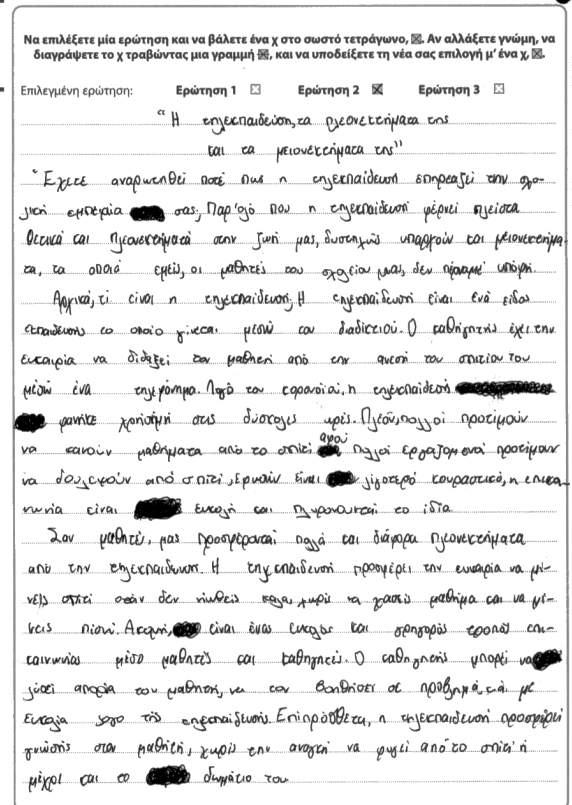 Να επιλέξετε μία ερώτηση και να βάλετε ένα χ στο σωστό τετράγωνο, ☒. Αν αλλάξετε γνώμη, να
διαγράψετε το χ τραβώντας μια γραμμή ☒, και να υποδείξετε τη νέα σας επιλογή μ' ένα χ, ☒.
Επιλεγμένη ερώτηση: Ερώτηση 1 ☒ Ερώτηση 2 ☒ Ερώτηση 3 ☒
"Η τηλεκπαίδευση, τα πλεονεκτήματα της
και τα μειονεκτήματα της"
"Έχετε αναρωτηθεί ποτέ πως η τηλεκπαίδευσή επηρεάζει την σχο-
λική εμπειρία σας; Παρ'όλο που η τηλεκπαίδευσή φέρνει πλείστα
θετικά και πλεονεκτήματά στην ζωή μας, δυστηχώς υπάρχουν και μειονεκτήμα-
τα, τα οποιά εμείς, οι μαθητές του σχολείου μας, δεν υπόψη.
Αρχικά, τί είναι η τηλεκπαίδευσή; Η τηλεκπαίδευσή είναι ενά είδος
εκπαίδευσης το οποίο γίνεται μέσω του διαδικτιού. Ο καθηγητής έχει την
ευκαιρία να διδάξει τον μαθητή από την ανεσή του σπιτίου του
μέσω ένα τηλεφόνημα. Λογό του κορανοϊού, η τηλεκπαίδεσή
φανήκε χρήσιμή στις δύσκολες ωρές. Πλέον, πολλοί προτιμούν
να κανούν μαθήματα από το σπίτι αφού πολλοί εργαζομενοί προτιμουν
να δουλεψούν από σπιτί, ερκούν είναι λιγοτερό κουραστικό, η επικοι-
νωνία είναι ευκολή και πληρονουνταί το ίδιο.
Σαν μαθητές, μας προσφέρονται πολλά και διάφορα πλεονεκτήματα
από την τηλεκπαίδευση. Η τηλεκπαίδευσή προσφέρει την ευκαιρία να μέ-
νεις σπίτι όταν δεν νιώθεις καλα, χωρίς να χασείς μαθήμα και να μέ-
νεις πίσω. Ακομή, είναι ένας ευκολός και γρηγορός τροπός επι-
κοινωνίας μέσο μαθητές και καθηγητές. Ο καθηγητής μπορεί να
λύσει απορία του μαθητή, να τον βοηθήσει σε προβλημά, κ.ά. με
ευκολία λογο της τηλεκπαίδευσής. Επιπρόσθετα, η τηλεκπαίδευσή προσφέρει
γνώσης στον μαθητή, χωρίς την αναγκή να φυγεί από το σπίτι ή
μέχρι και το δωμάτιο του.